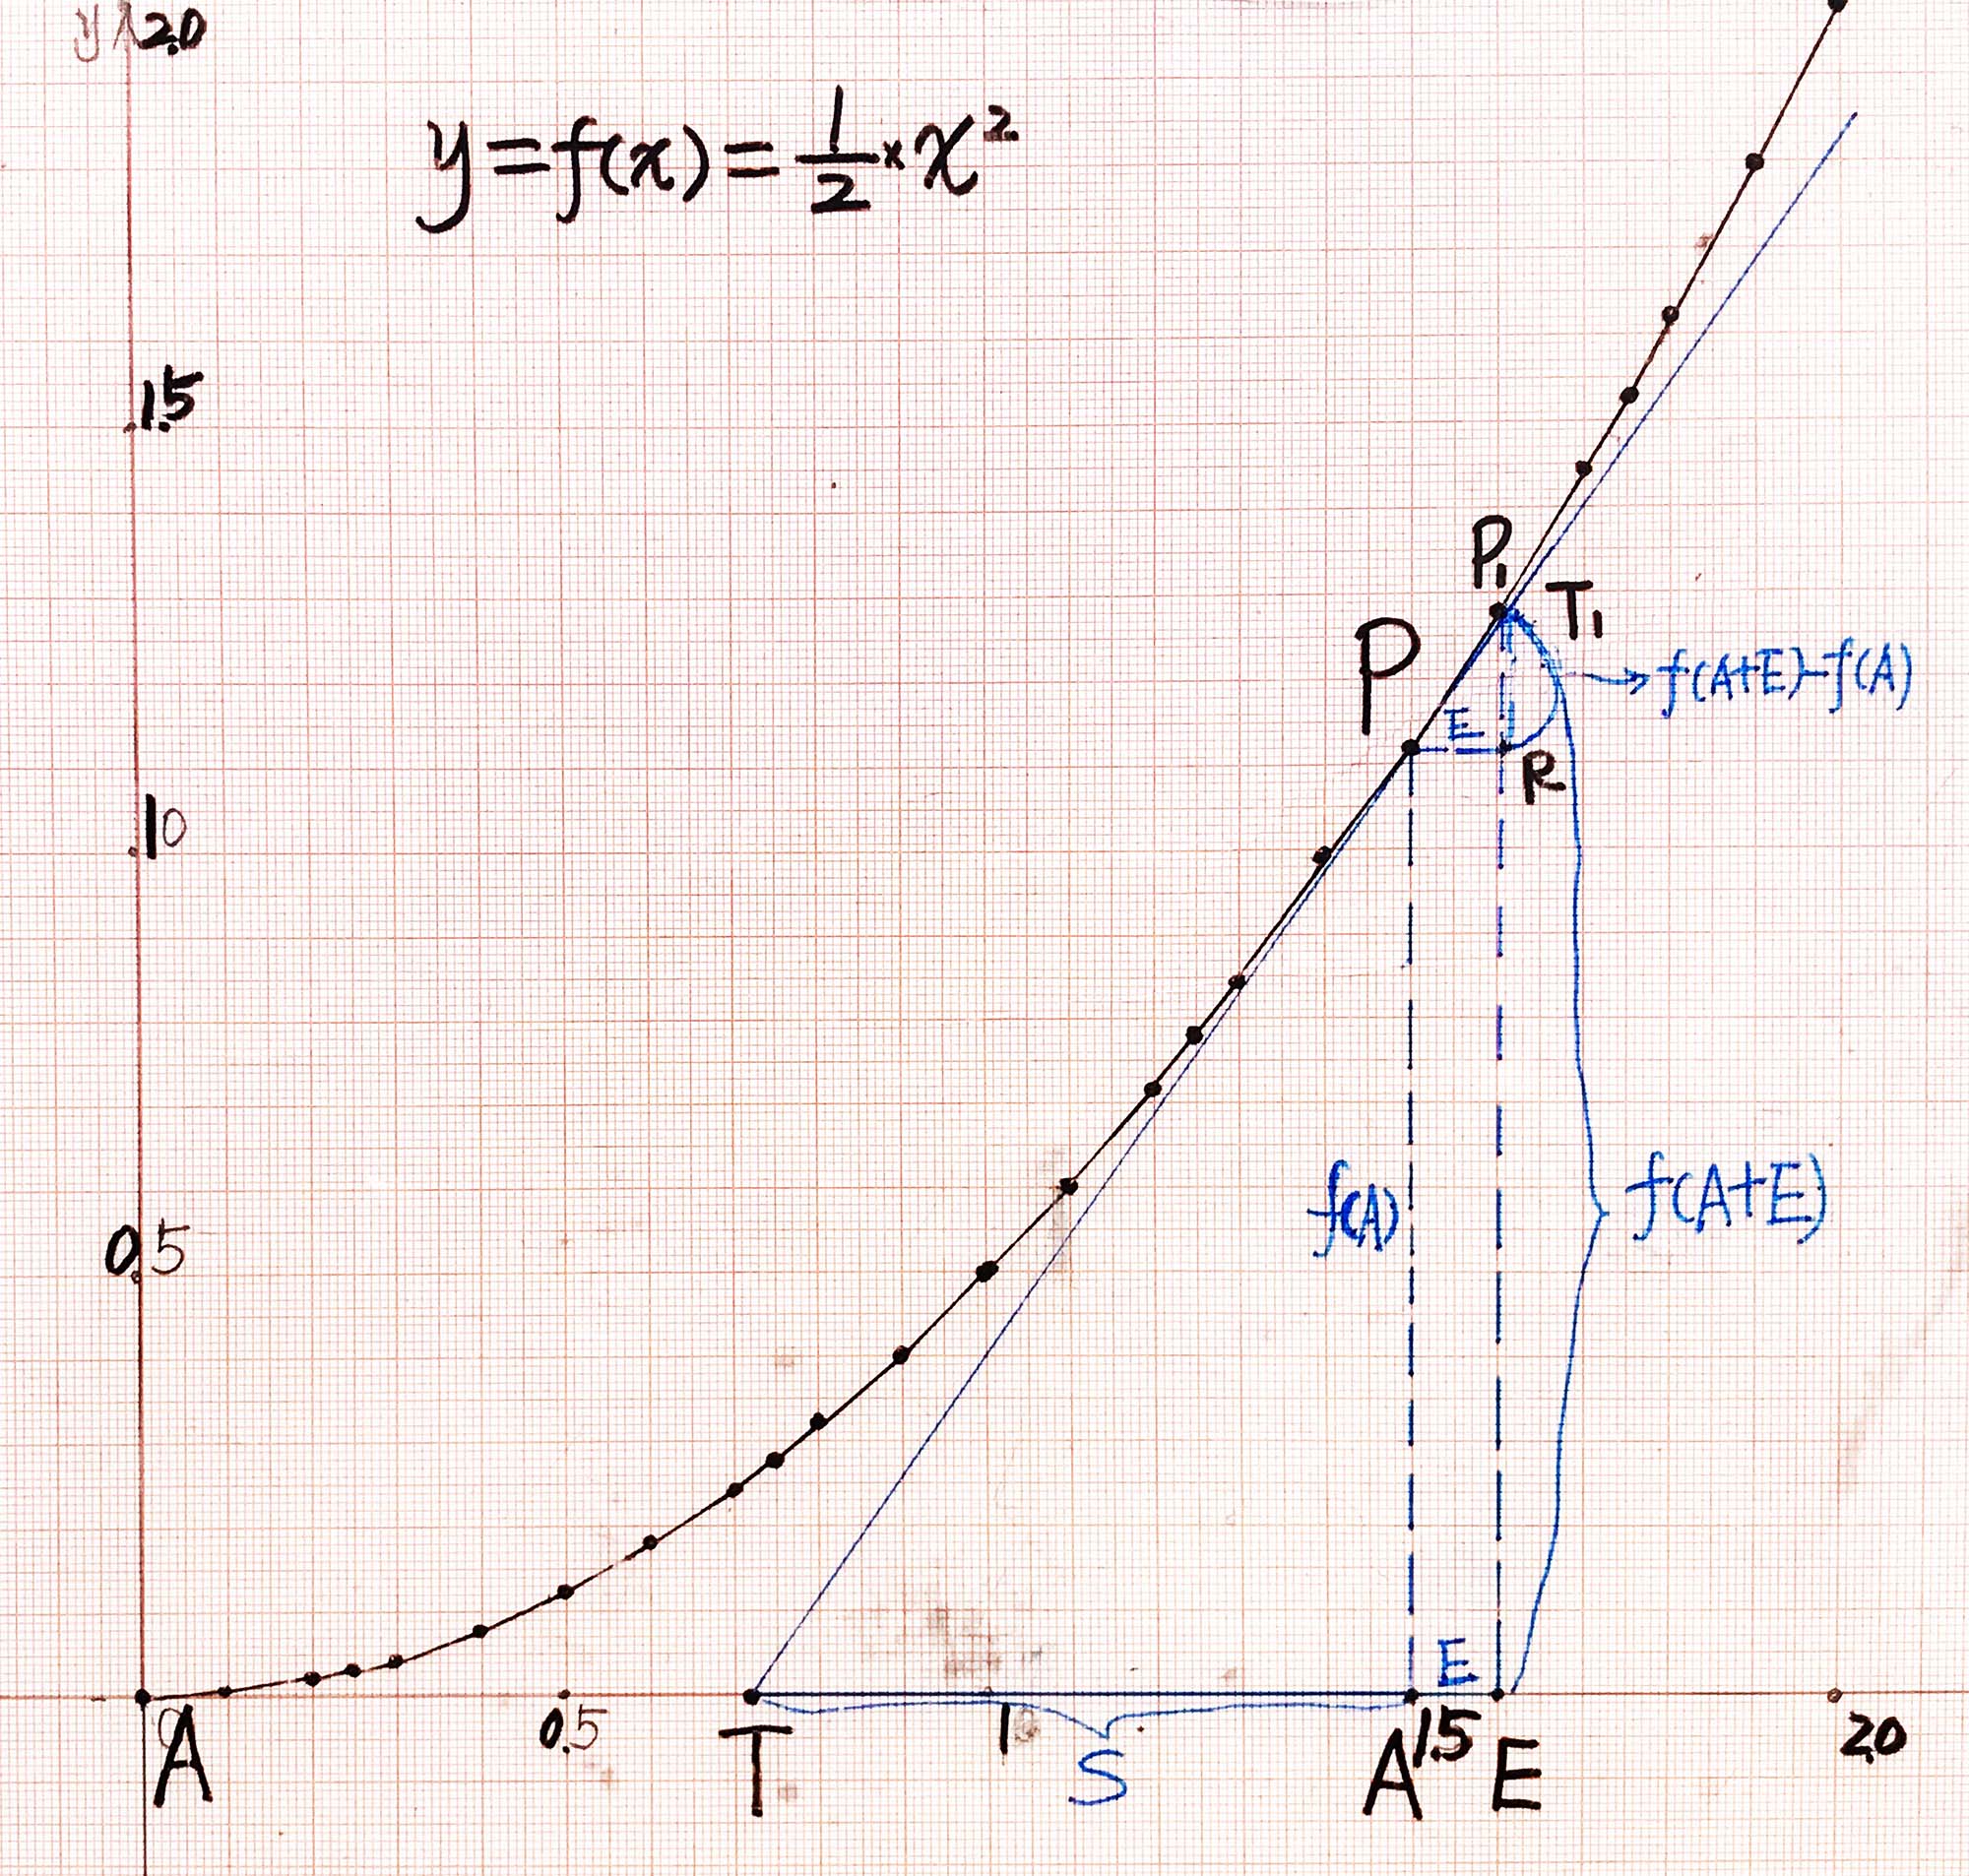 y 2.0
y=f(x)=1/2×x²
1.5
P₁
T₁
P
→f(A+E)-f(A)
E
R
1.0
f(A)
f(A+E)
0.5
E
A
0.5
T
1.0
S
A
1.5
E
2.0